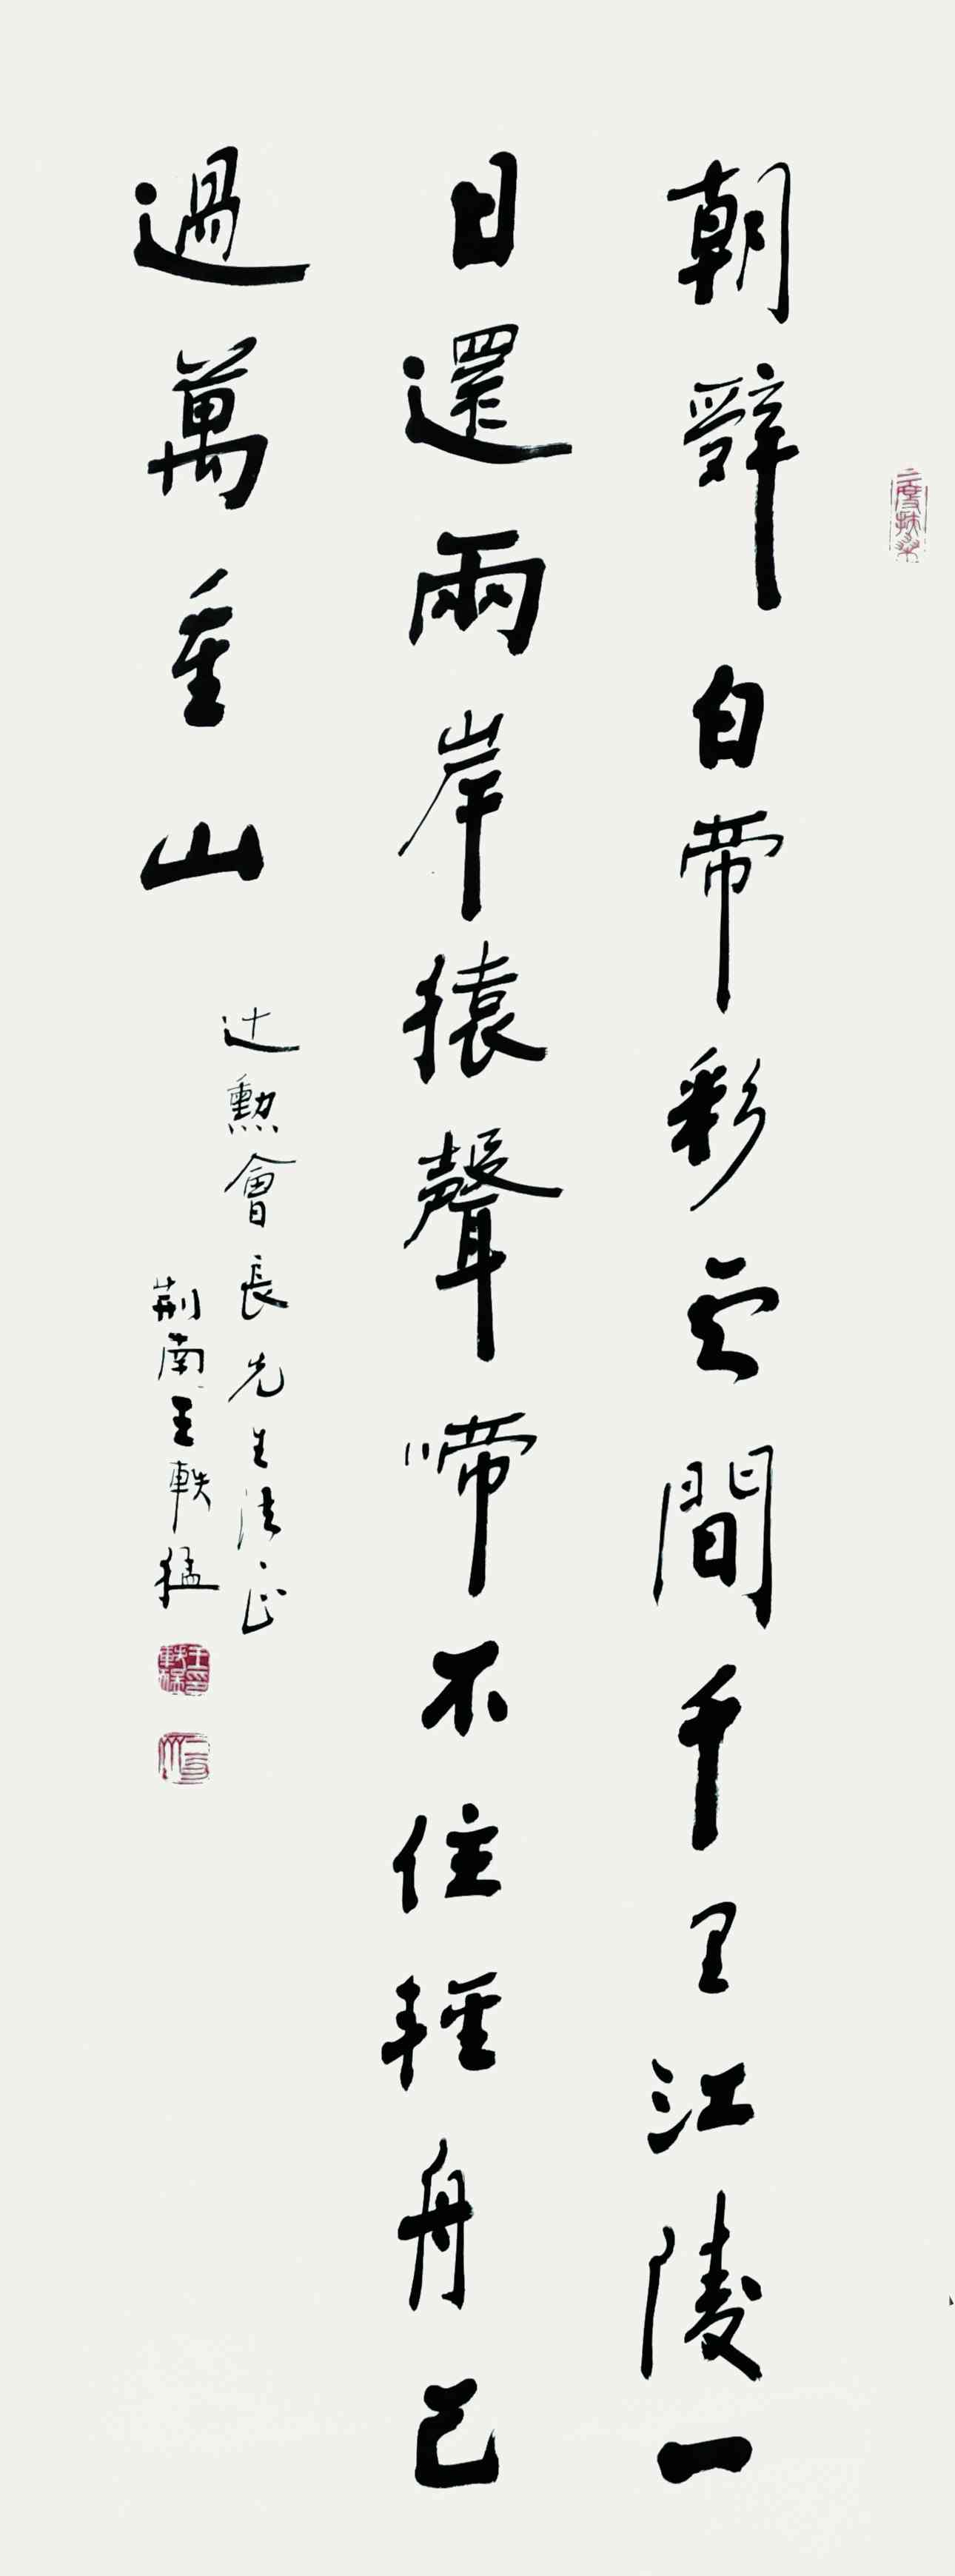 朝辭白帝彩云間千里江陵一
日還兩岸猿聲啼不住輕舟已
過萬重山
辻勲會長先生法正
荆南王軼猛